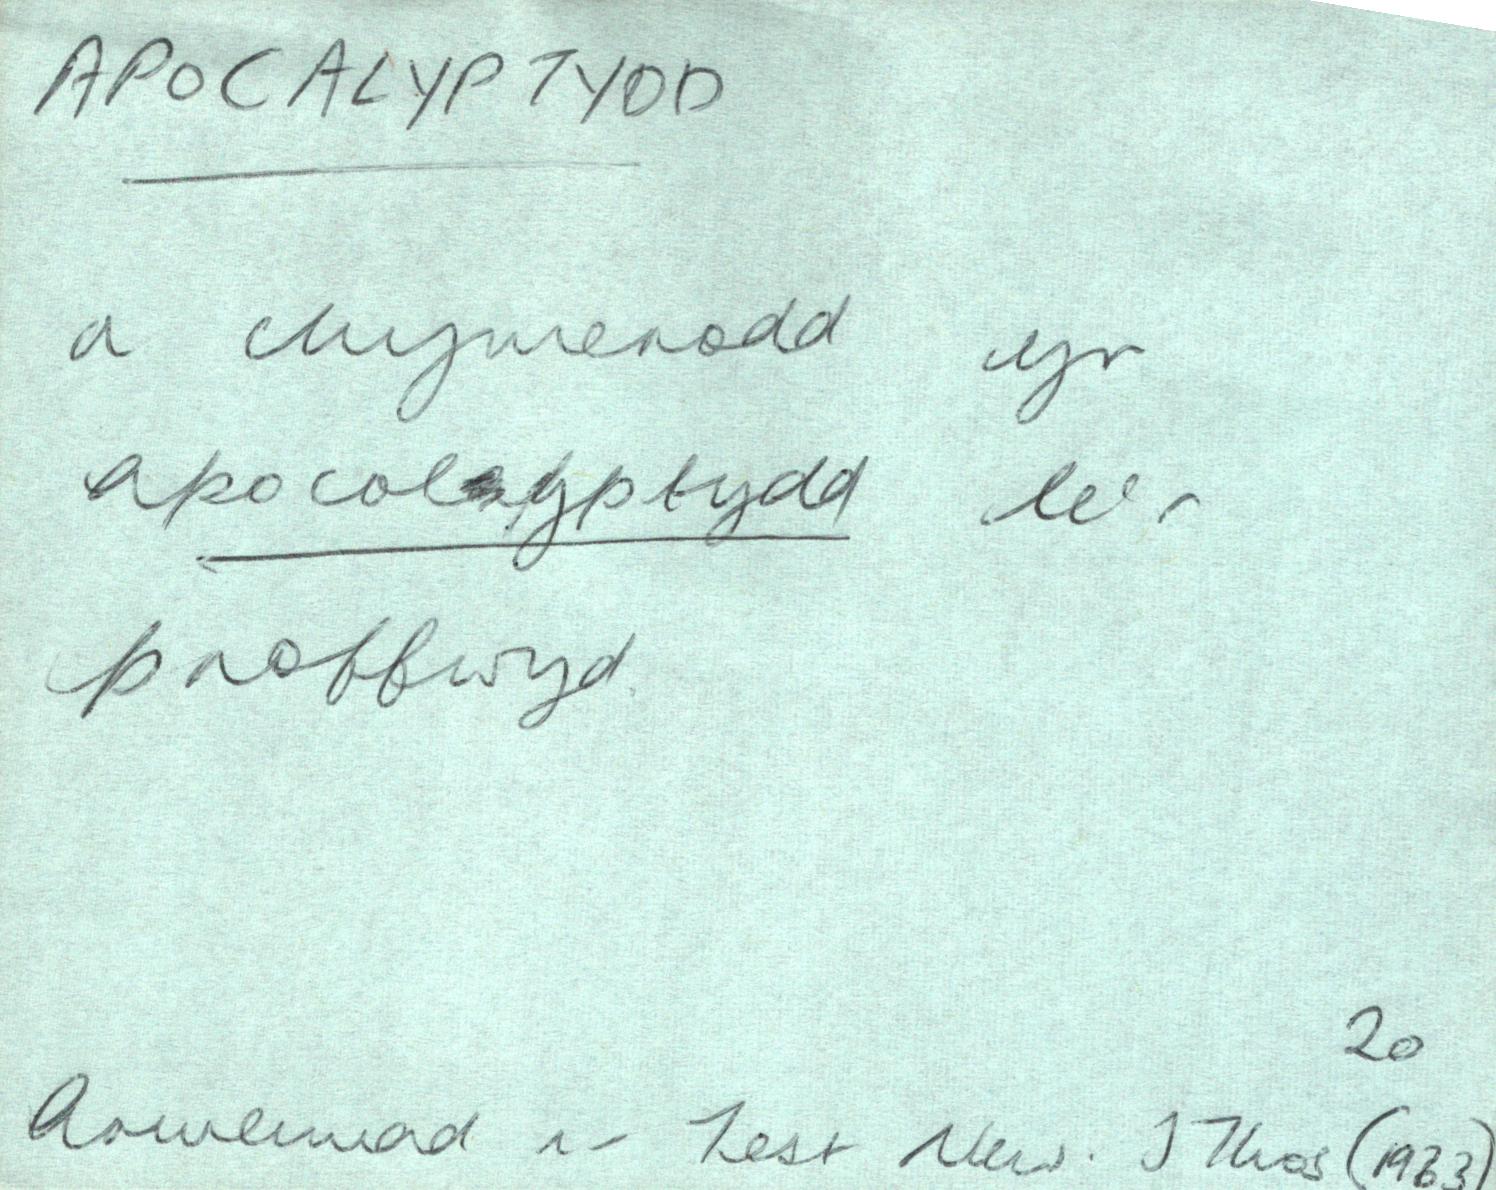 APOCALYPTYDD
a chymerodd yr
apocalyptydd le'r
proffwyd
20
Arweiniad i'r Test New. J Thos (1963)